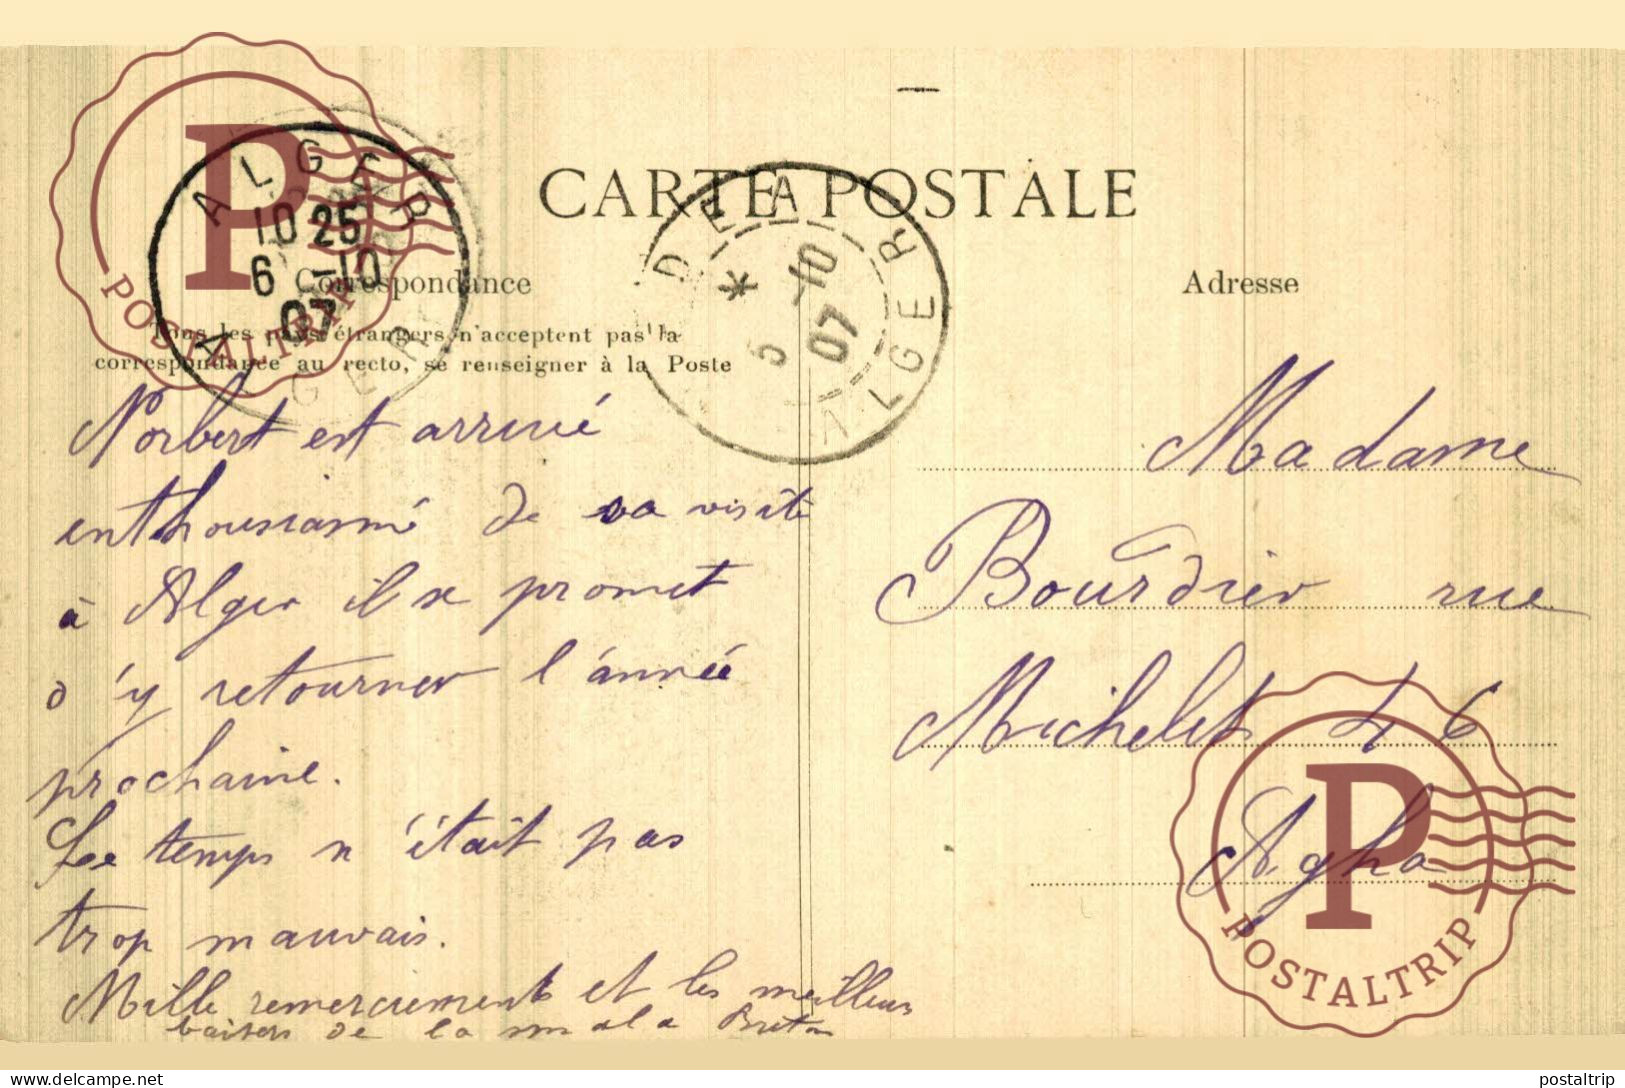 CARTE POSTALE
ALGER
10 25
6 -10
07
ALGER
POSTALTRIP
DÉPART
ALGER
* 5 -10 07
Correspondance
Tous les pays étrangers n'acceptent pas la
correspondance au recto, se renseigner à la Poste
Norbert est arrivé
enthousiasmé de sa visite
à Alger il se promet
d'y retourner l'année
prochaine.
Le temps n'était pas
trop mauvais.
Mille remerciements et les meilleurs
baisers de la
Adresse
Madame
Bourdier rue
Michelet 46
Agha
POSTALTRIP
www.delcampe.net
postaltrip